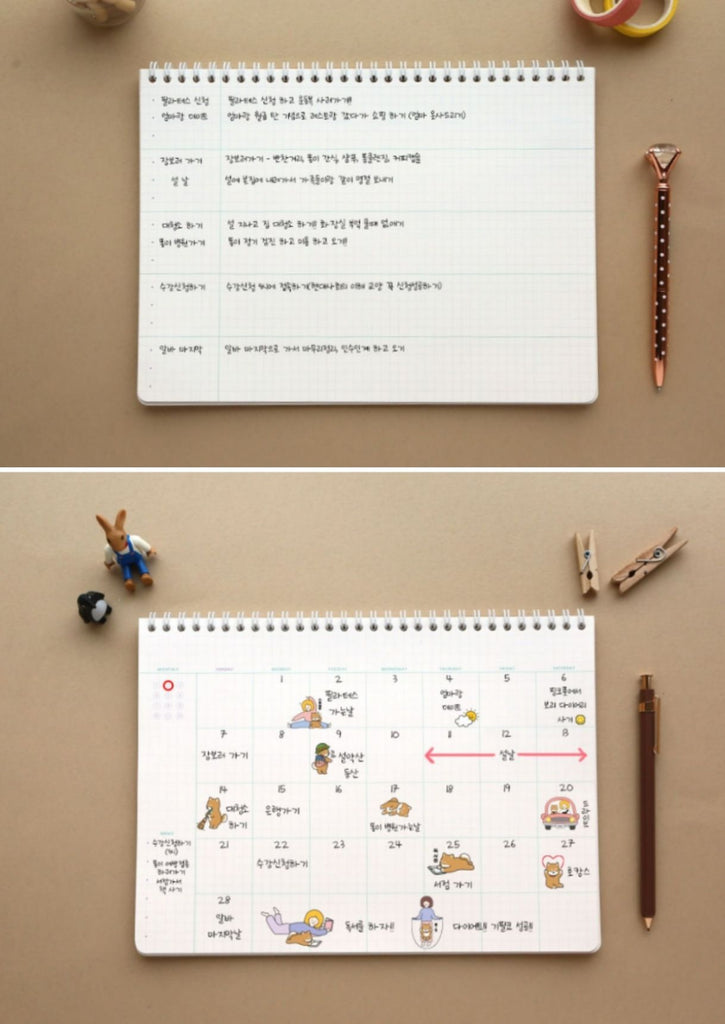 필라테스 신청 필라테스 신청 하고 운동복 사러가기!!
엄마랑 데이트 엄마랑 월급 탄 기념으로 레스토랑 갔다가 쇼핑 하기 (엄마 옷사드리기)
장보러 가기 장보러가기 - 반찬거리, 똘이 간식, 샴푸, 폼클렌징, 커피캡슐
설 날 설에 본집에 내려가서 가족들이랑 같이 명절 보내기
대청소 하기 설 지나고 집 대청소 하기!! 화장실 부엌 물때 없애기
똘이 병원가기 똘이 정기 검진 하고 미용 하고 오기!!
수강신청하기 수강신청 9시에 접속하기(현대사회의 이해 교양 꼭 신청성공하기)
알바 마지막 알바 마지막으로 가서 마무리정리, 인수인계 하고 오기
1 2 3 4 5 6
필라테스
가는날
엄마랑
데이트
핑크풋에서
보리 다이어리
사기
7 8 9 10 11 12 13
장보러 가기
설악산
등산
설날
14 15 16 17 18 19 20
대청소
하기
은행가기
똘이 병원가는날
21 22 23 24 25 26 27
수강신청하기
서점 가기
호캉스
28
알바
마지막날
독서를 하자!!
다이어트!! 기필코 성공!!
수강신청하기
(9시)
똘이 예방접종
하러가기
서점가서
책 사기